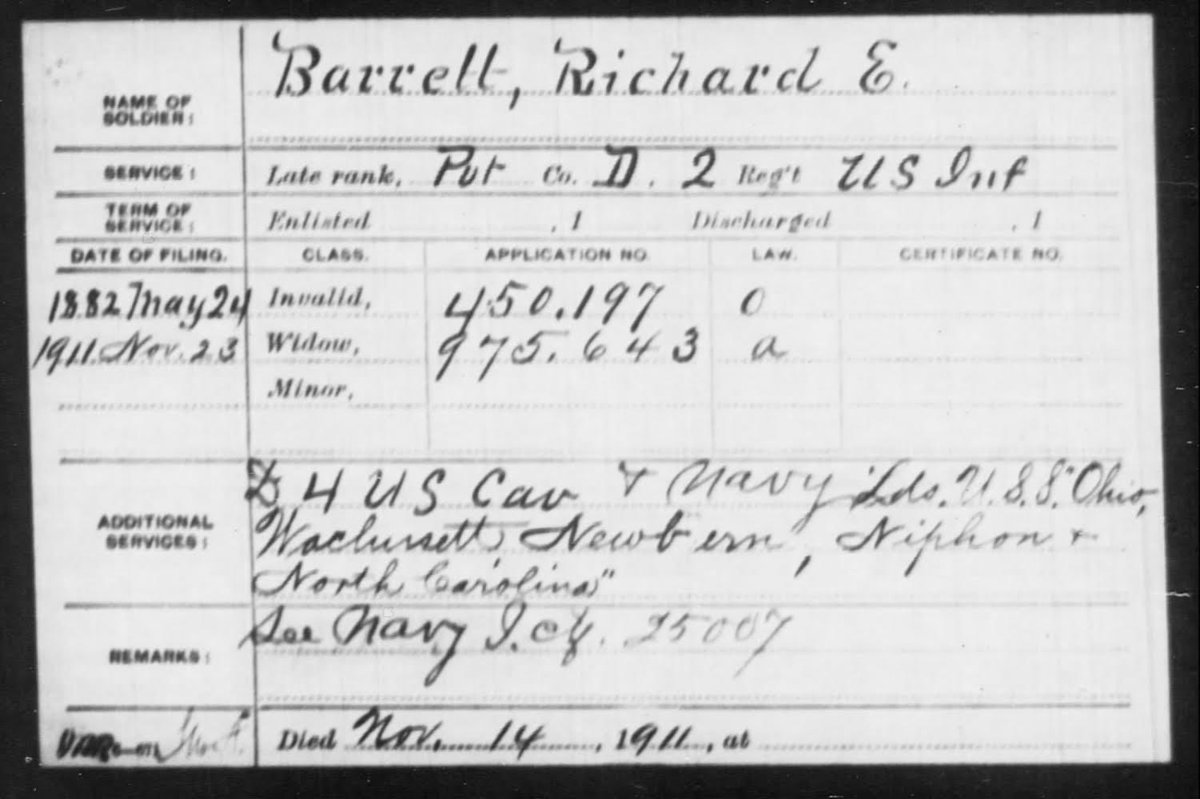 NAME OF SOLDIER: Barrett, Richard E.
SERVICE: Late rank, Pvt Co. D. 2 Reg't US Inf
TERM OF SERVICE: Enlisted , 1 Discharged , 1
DATE OF FILING. CLASS. APPLICATION NO. LAW. CERTIFICATE NO.
1882 May 24 Invalid, 450.197 O
1911 Nov. 23 Widow, 975.643 a
Minor,
ADDITIONAL SERVICES: D 4 US Cav + Navy Lds. U.S.S. "Ohio,
Wachusett Newbern, Niphon +
North Carolina"
REMARKS: See Navy I. 25007
Died Nov. 14, 1911, at